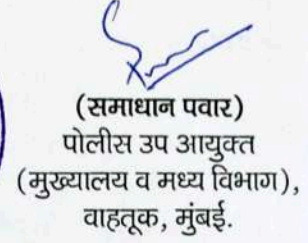 (समाधान पवार)
पोलीस उप आयुक्त
(मुख्यालय व मध्य विभाग),
वाहतूक, मुंबई.